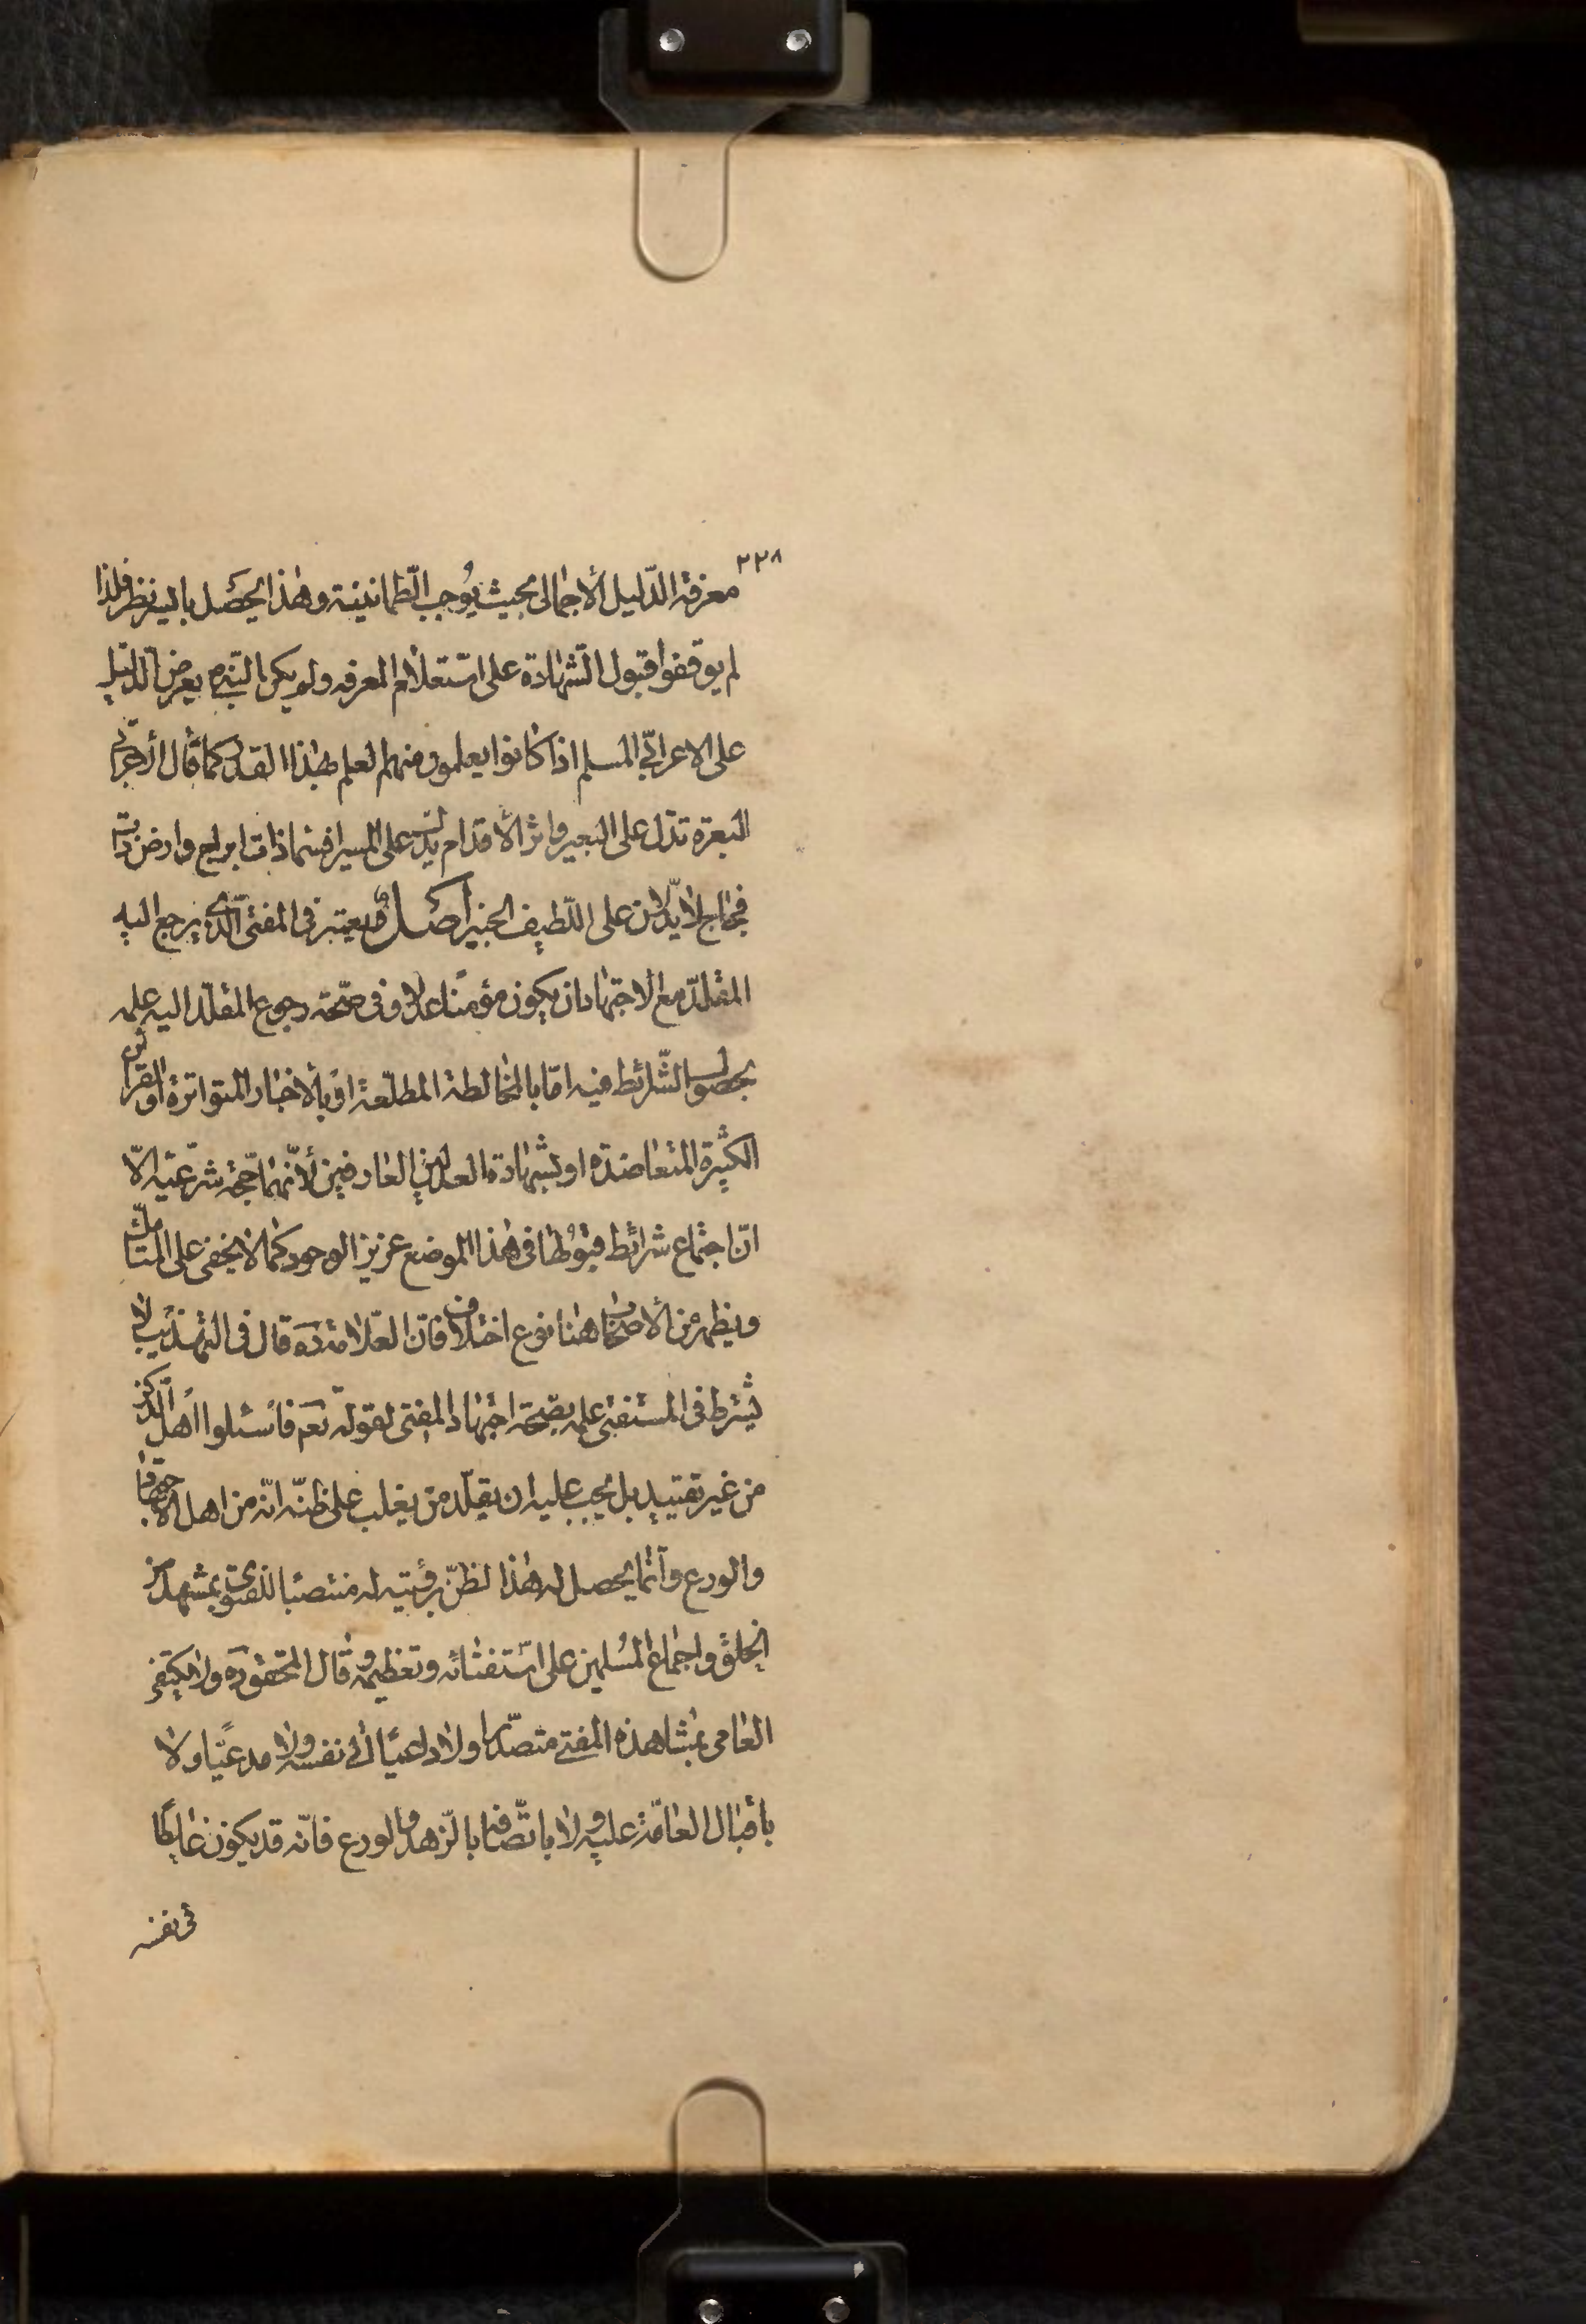 ٢٢٨
معرفة الدّليل الأجمالى بحيث يُوجب الطّمانينة وهذا يحصَل بايسر نظر فلذا
لم يوقفوا قبول الشّهادة على استعلام المعرفه ولم يكن النّبىّ ص يعرض الدّليل
على الاعرابىّ المسلم اذا كانوا يعلمون منهم العلم بهذا القدر كما قال الأعرابىّ
البعرة تدلّ على البعير واثر الأقدام يدلّ على المسير افسماء ذات ابراج وارض ذات
فجاج لا يدّلان على اللّطيف الخبير أصَل ويعتبر فى المفتى الّذى يرجع اليه
المقلّد مع الاجتهاد ان يكون مؤمنًا عدلا وفى صحّة رجوع المقلّد اليه علمه
بحصول الشّرائط فيه امّا بالمخالطة المطلّعة او بالأخبار المتواترة او القرائن
الكثيرة المتعاضده او بشهادة العدلين العارفين لأنّهما حجّة شرعيّه الّا
انّ اجتماع شرائط قبولها فى هذا الموضع عزيز الوجود كما لا يخفى على المتأمّل
ويظهر من الأصحاب هنا نوع اختلاف فانّ العلّامة ره قال فى التهذيب لا
يشترط فى المستفتى علمه بصحّة اجتهاد المفتى لقوله تعم فاسئلوا اهل الّذكر
من غير تقييد بل يجب عليه ان يقلّد من يغلب على ظنّه انّه من اهل الاجتهاد
والورع وانّما يحصل له هذا لظنّ برؤيته له منتصبا للفتوى بمشهد من
الخلق واجماع المُسلمين على استفتائه وتعظيمه وقال المحقّق ره ولا يكتفى
العامى بمشاهدة المفتى متصدّرا ولا داعيًا الى نفسه ولا مدعّيًا ولا
باقبال العامّة عليه ولا باتّصافه بالزّهد والورع فانّه قد يكون غالطًا
فى نفسه